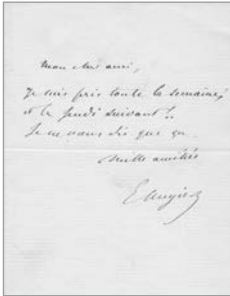 Mon cher ami,
Je suis pris toute la semaine,
et le jeudi suivant !!
Je ne vous dis que ça.
Mille amitiés
E Augier